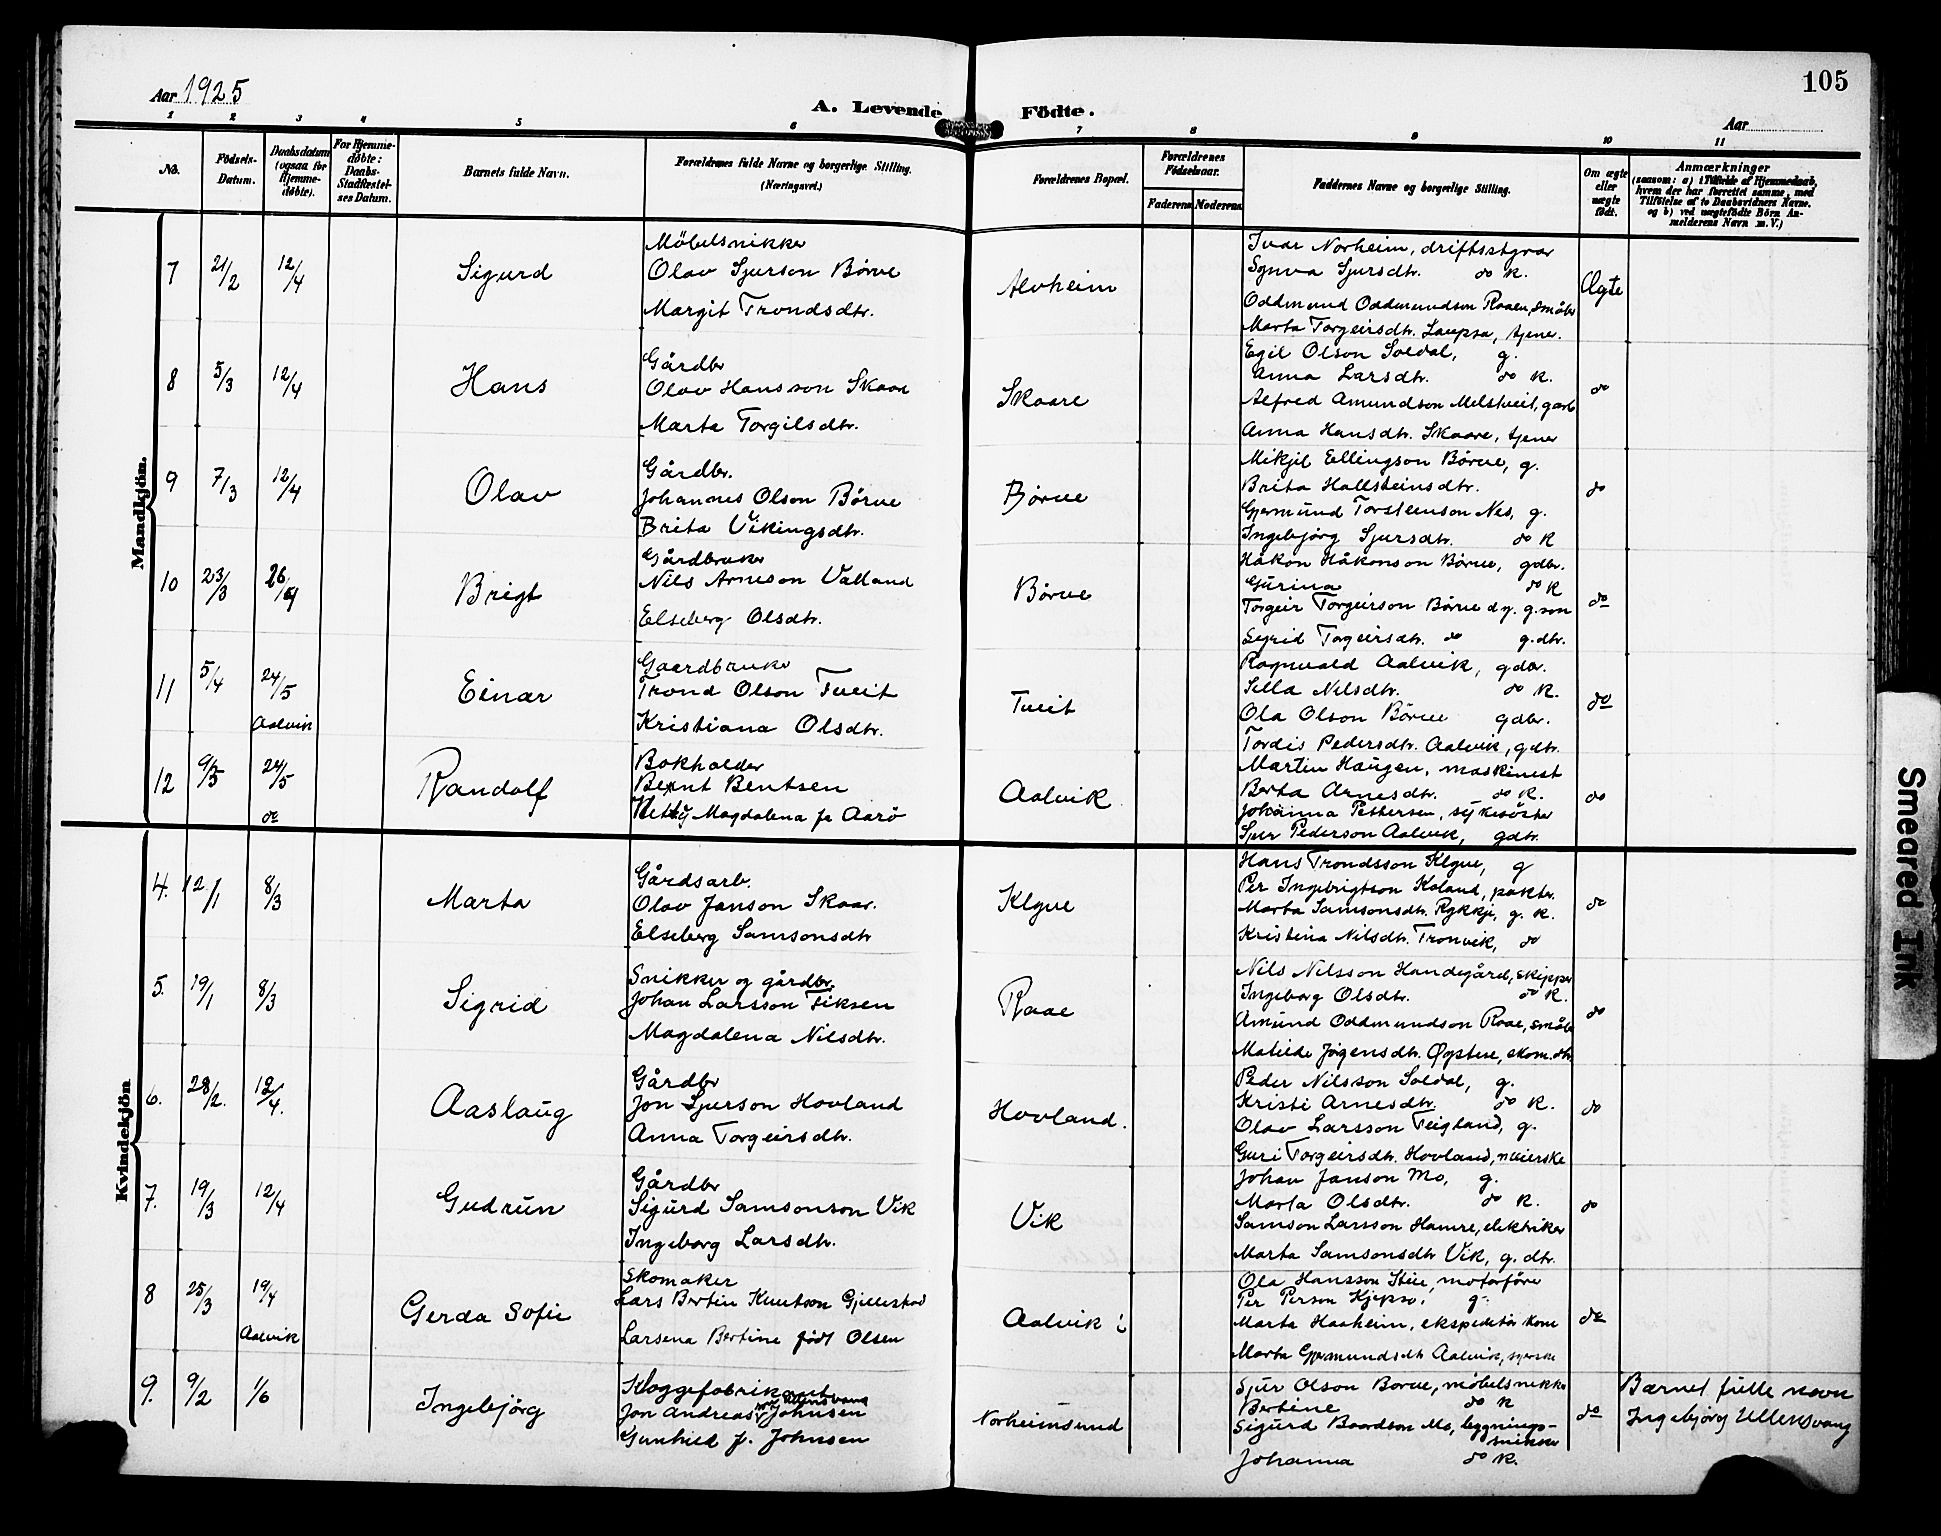 105
Aar 1925
A. Levende Födte.
Aar
1 2 3 4 5 6 7 8 9 10 11
No.
Födsels-Datum.
Daabsdatum (ogsaa for Hjemme-døbte).
For Hjemme-døbte: Daabs-Stadfæstel-ses Datum.
Barnets fulde Navn.
Forældrenes fulde Navne og borgerlige Stilling. (Næringsvei.)
Forældrenes Bopæl.
Forældrenes Födselsaar.
Faderens
Moderens
Faddernes Navne og borgerlige Stilling.
Om ægte eller uægte födt.
Anmærkninger
(saasom: a) i Tilfælde af Hjemmedaab, hvem der har forrettet samme, med Tilföielse af to Daabsvidners Navne, og b) ved uægtefödte Börn An-melderens Navn m. V.)
Mandkjön.
7 21/2 12/4 Sigurd
Möbelsnikker
Olav Sjurson Börve
Margit Trondsdtr.
Alvheim
Ivar Norheim, driftsstyrar
Synva Sjursdtr. do K.
Oddmund Oddmundson Raaen, småbr
Marta Torgeirsdtr. Laupsa, tjener.
Ægte
8 5/3 12/4 Hans
Gårdbr
Olav Hansson Skaar
Marta Torgilsdtr.
Skaare
Egil Olson Soldal, g.
Anna Larsdtr. do K.
Alfred Amundson Melstveit, garb
Anna Hansdtr. Skaare, tjener
do
9 7/3 12/4 Olav
Gårdbr.
Johannes Olson Börve
Brita Vikingsdtr.
Börve
Mikjel Ellingson Börve, g.
Brita Hallsteinsdtr.
Gjermund Torsteinson Nes, g.
Ingebjörg Sjursdtr. do K
do
10 23/3 26/4 Brigt
Gårdbruker
Nils Arneson Valland
Elseberg Olsdtr.
Börve
Håkon Håkonson Börve, gdbr.
Gurina do K
Torgeir Torgeirson Börve d.y. g.son
Sigrid Torgeirsdtr. do g.dtr.
do
11 5/4 24/5 Aalvik Einar
Gaardbruker
Trond Olson Tveit
Kristiana Olsdtr.
Tveit
Ragnvald Aalvik, gdbr.
Sella Nilsdtr. do K.
Ola Olson Börve gdbr.
Tordis Pedersdtr. Aalvik, gdtr.
do
12 9/5 24/5 do Randolf
Bokholder
Bernt Bentsen
Hetty Magdalena f. Aarö
Aalvik
Martin Haugen, maskinist
Berta Arnesdtr. do K.
Johanna Pettersen, sykesöster
Sjur Pederson Aalvik, gdtr.
do
Kvindekjön
4. 12/1 8/3 Marta
Gårdsarb.
Olav Janson Skaar.
Elseberg Samsonsdtr
Klyve
Hans Trondsson Klyve, g
Per Ingebrigtson Kaland, pakter
Marta Samsonsdtr. Rykkje, g. K.
Kristina Nilsdtr. Tronvik, do
do
5. 19/1 8/3 Sigrid
Snikker og gårdbr.
Johan Larsson Fiksen
Magdalena Nilsdtr.
Raae
Nils Nilsson Handegård, skipper
Ingeborg Olsdtr. do K.
Amund Oddmundson Raae, småbr
Matilde Jögensdtr. Öystese, skom.dtr.
do
6. 28/2. 12/4. Aaslaug
Gårdbr
Jon Sjurson Hovland
Anna Torgeirsdtr.
Hovland.
Peder Nilsson Soldal, g.
Kristi Arnesdtr. do K.
Olav Larsson Teigland, g.
Guri Torgeirsdtr. Hovland, meierske
do
7. 19/3 12/4 Gudrun
Gårdbr
Sigurd Samsonson Vik
Ingeborg Larsdtr.
Vik
Johan Janson Mo, g.
Marta Olsdtr. do K.
Samson Larsson Hamre, elektriker
Marta Samsonsdtr Vik, g. dtr.
do
8 25/3 19/4 Aalvik Gerda Sofie
Skomaker
Lars Bertin Knutson Gjellestad
Larsena Bertine født Olsen
Aalvik i
Ola Hansson Steie, motorförer
Per Person Kjepso, g.
Marta Haaheim, ekspeditör kone
Marta Gjermundsdtr Aalvik, syerske
do
9. 9/2 1/6 Ingebjörg
Kloggefabrikant
Jon Andreas Johnsen
Gunhild f. Johnsen
Norheimsund
Sjur Olson Borve, möbelsnikker
Bertine do K
Sigurd Baardson Mo, bygningssnikker
Johanna do K.
do
Barnet fulle navn
Ingebjörg Ullensvang
Smeared Ink